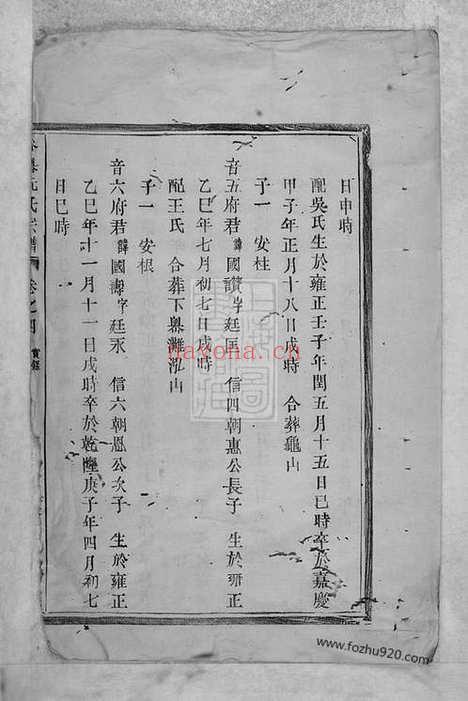 日申時
配吳氏生於雍正壬子年閏五月十五日巳時卒於嘉慶
甲子年正月十八日戌時 合葬龜山
子一 安柱
音五府君 諱國讚字廷匡 信四朝惠公長子 生於雍正
乙巳年七月初七日戌時
配王氏 合葬下嶴灘泓山
子一 安根
音六府君 諱國海字廷永 信六朝恩公次子 生於雍正
乙巳年十一月十一日戌時卒於乾隆庚子年四月初七
日巳時
氏宗譜 卷之四
nayona.cn
www.fozhu920.com